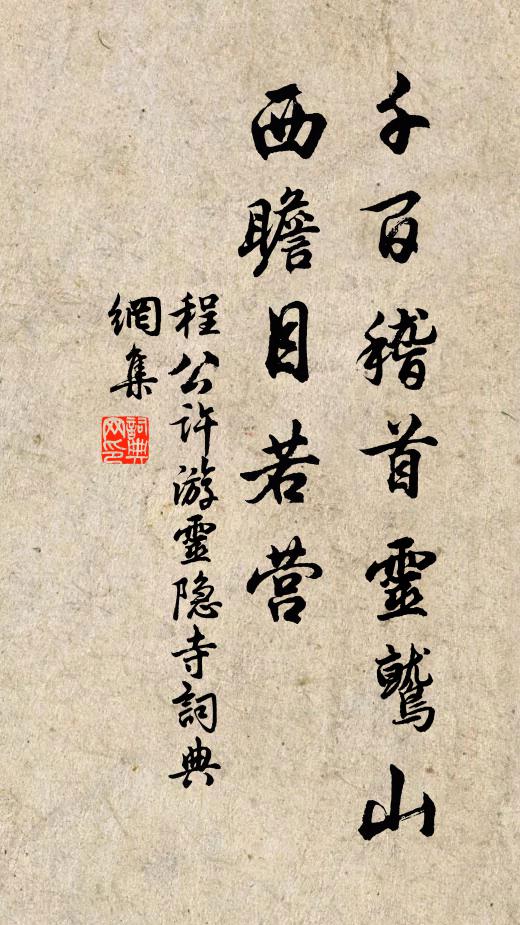 千百稽首靈鷲山
西瞻目若营
程公许游靈隐寺詞典
網集
詞典
网印